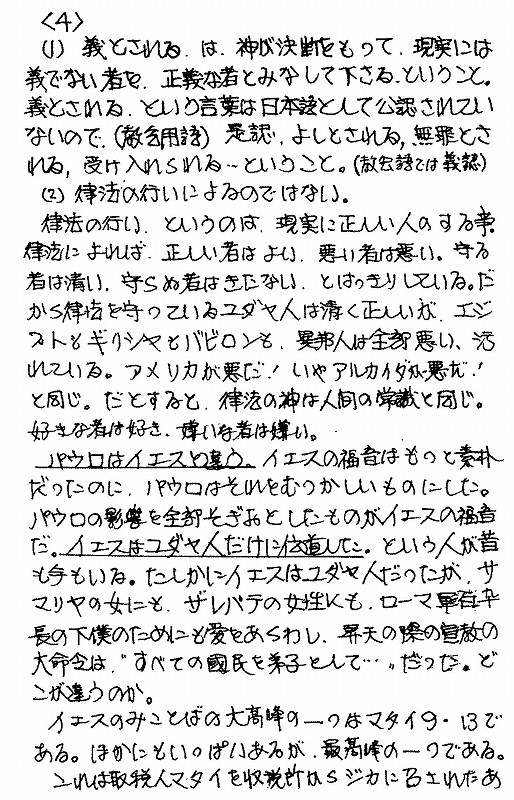 〈4〉
(1) 義とされる. は. 神が決断をもって. 現実には
義でない者を. 正義な者とみなして下さる. ということ。
義とされる. という言葉は日本語として公認されてい
ないので. (教会用語) 是認. よしとされる, 無罪とさ
れる, 受け入れられる…ということ。(教会語では義認)
(2) 律法の行いによるのではない.
律法の行い. というのは. 現実に正しい人のする事.
律法によれば. 正しい者はよい. 悪い者は悪い。守る
者は清い. 守らぬ者はきたない. とはっきりしている。だ
から律法を守っているユダヤ人は清く正しいが. エジ
プトもギリシヤもバビロンも. 異邦人は全部悪い、汚
れている。アメリカが悪だ! いやアルカイダが悪だ!
と同じ。だとすると. 律法の神は人間の常識と同じ。
好きな者は好き. 嫌いな者は嫌い。
パウロはイエスと違う。イエスの福音はもっと素朴
だったのに. パウロはそれをむつかしいものにした。
パウロの影響を全部そぎおとしたものがイエスの福音
だ。イエスはユダヤ人だけに伝道した。という人が昔
も今もいる。たしかにイエスはユダヤ人だったが. サ
マリヤの女にも. ザレパテの女性にも. ローマ軍百卒
長の下僕のためにも愛をあらわし. 昇天の際の宣教の
大命令は. "すべての國民を弟子として…" だった。ど
こが違うのか。
イエスのみことばの大高峰の一つはマタイ9・13で
ある。ほかにもいっぱいあるが. 最高峰の一つである。
これは取税人マタイを収税所からジカに召されたあ